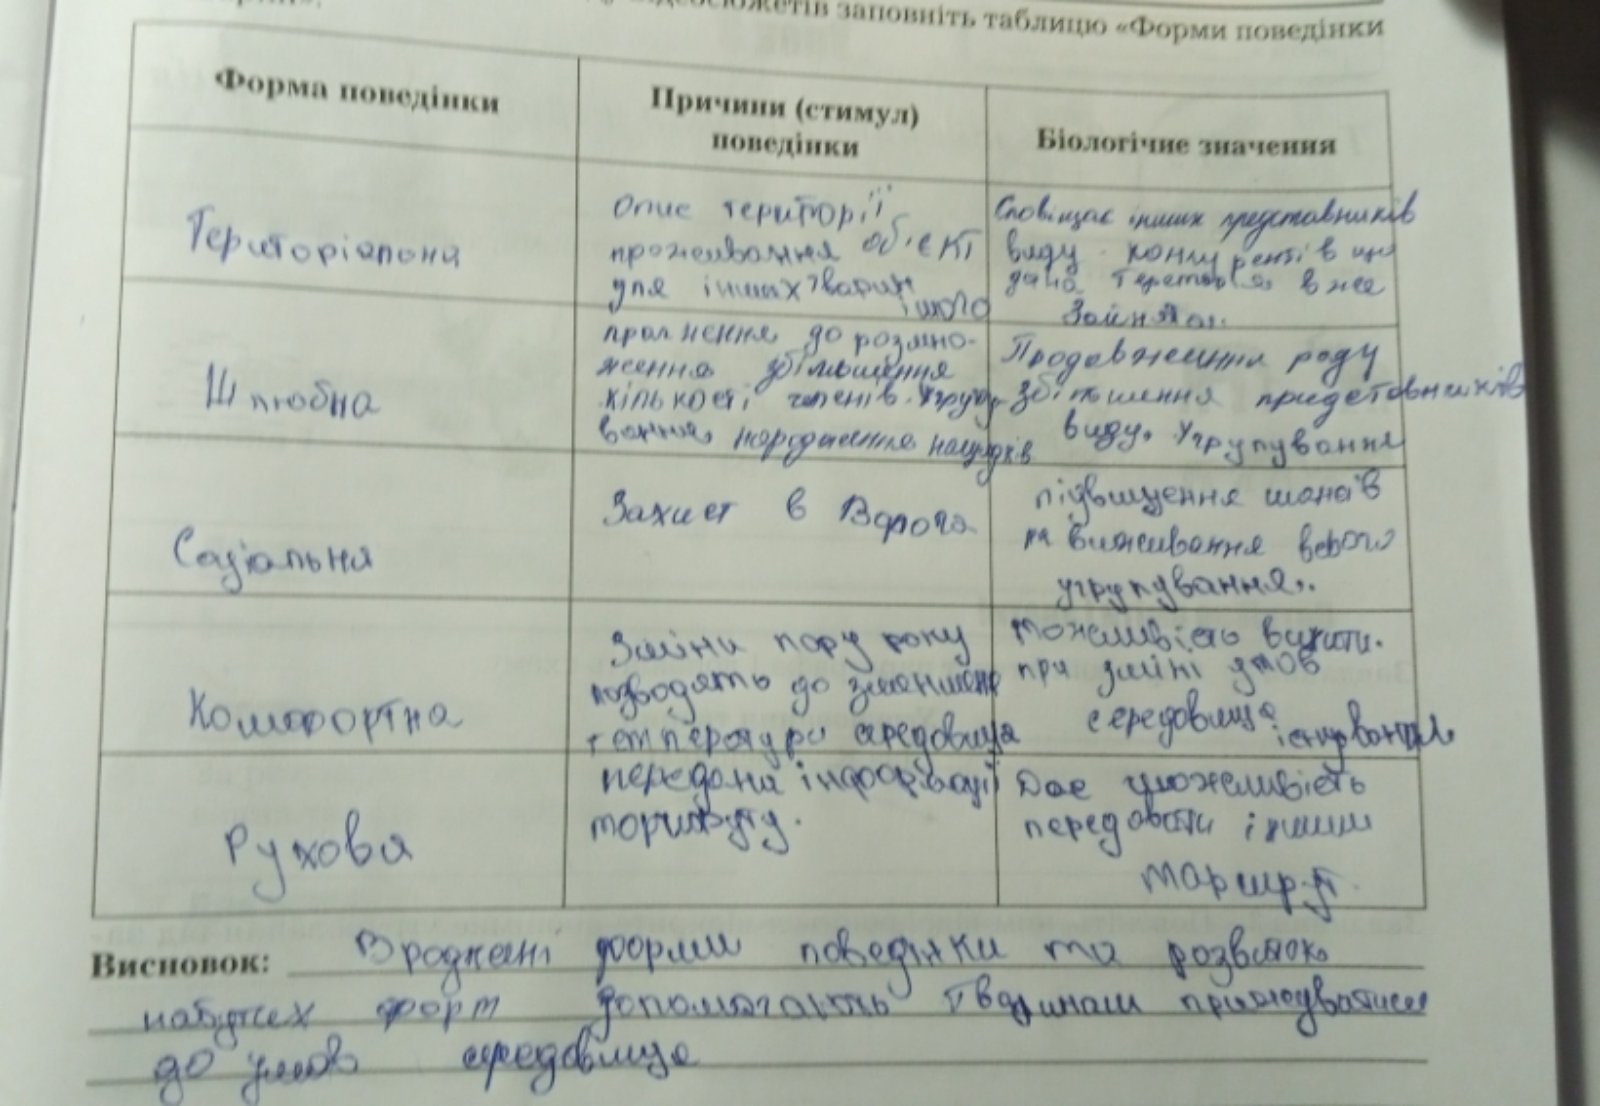 відеосюжетів заповніть таблицю «Форми поведінки
Форма поведінки
Причини (стимул)
поведінки
Біологічне значення
Територіальна
Опис території
проживання об'єкт
для інших тварин
Сповіщає інших представників
виду конкурентів що
дана територія вже
Зайнята.
Шлюбна
прагнення до розмно-
ження збільшення
кількості членів угрупу
вання народження нащадків
Продовження роду
збільшення придставників
виду. Угрупування
Соціальна
Захист в Ворога
підвищення шансів
на виживання всього
угрупування.
Комфортна
Зміни пору року
до зменшення
температури середовища
Можливість вижити.
при зміні умов
середовища існування
Рухова
передача інформації
Дає можливість
передавати іншим
маршрут.
Висновок: Вроджені форми поведінки та розвиток
набутих форм допомагають тваринам пристосуватися
до умов середовища